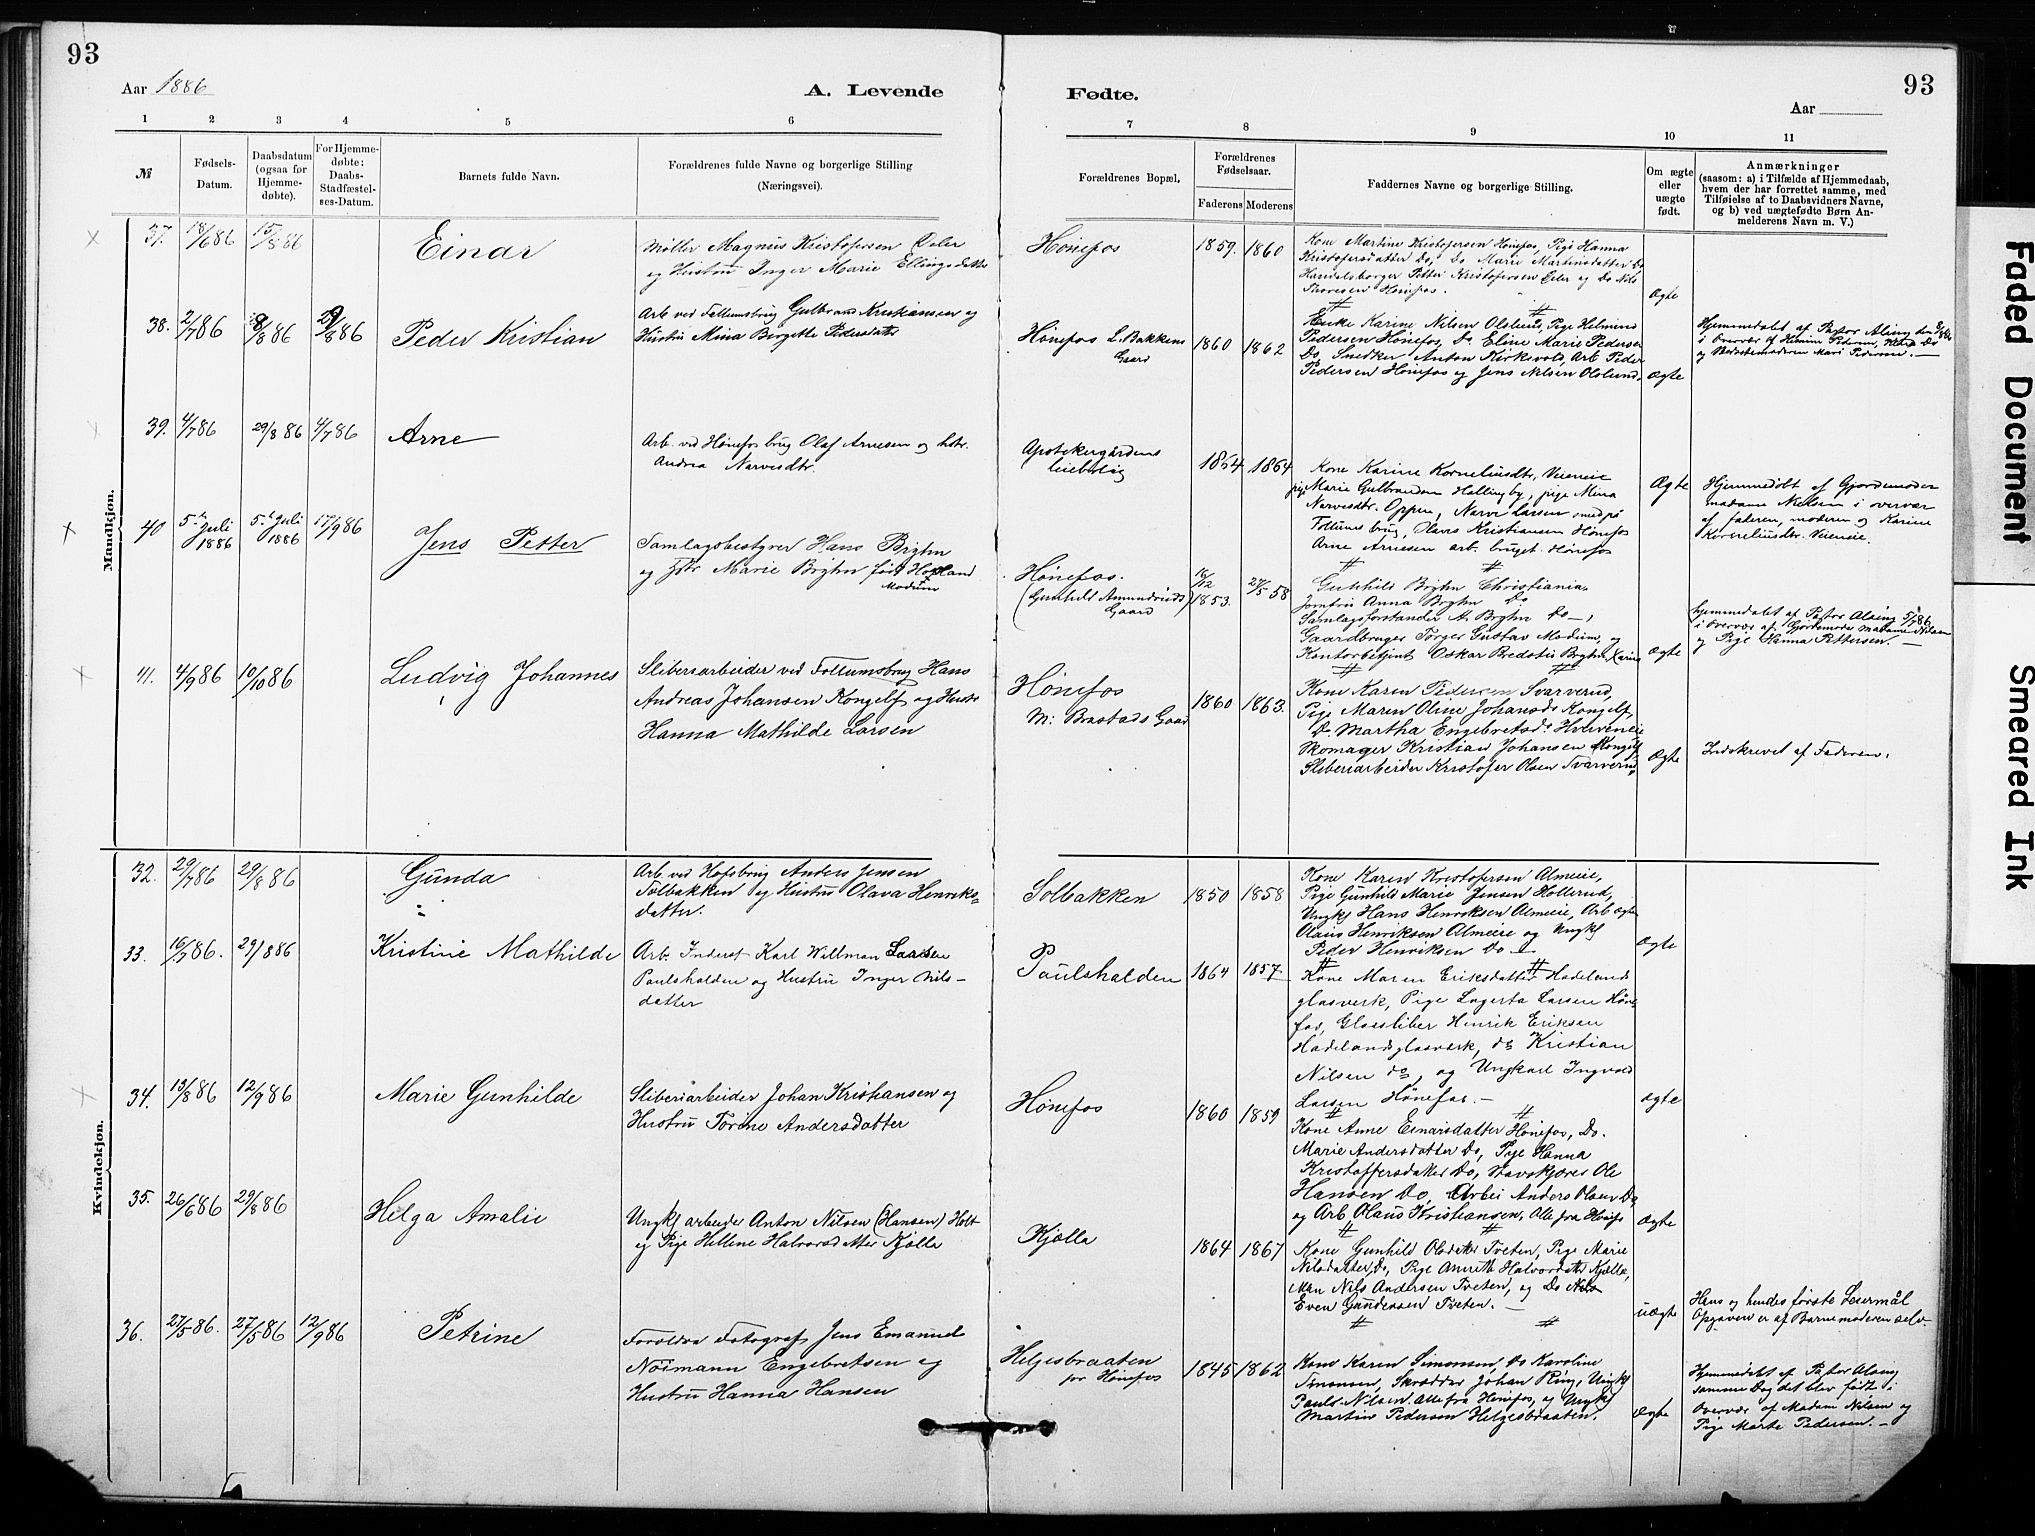 93
93
Aar 1886
A. Levende
Fødte.
Aar
1 2 3 4 5 6
7 8 9 10 11
№
Fødsels-
Datum.
Daabsdatum
(ogsaa for
Hjemme-
døbte).
For Hjemme-
døbte:
Daabs-
Stadfæstel-
ses-Datum.
Barnets fulde Navn.
Forældrenes fulde Navne og borgerlige Stilling
(Næringsvei).
Forældrenes Bopæl.
Forældrenes
Fødselsaar.
Faderens Moderens
Faddernes Navne og borgerlige Stilling.
Om ægte
eller
uægte
født.
Anmærkninger
(saasom: a) i Tilfælde af Hjemmedaab,
hvem der har forrettet samme, med
Tilføielse af to Daabsvidners Navne,
og b) ved uægtefødte Børn An-
melderens Navn m. V.)
Mandkjøn.
37. 18/6 86 15/8 86 Einar
Møller Magnus Kristofersen Eeler
og Hustru Inger Marie Ellingsdatter
Hønefos 1859. 1860
Kone Martine Kristofersen Hønefos, Pige Hanna
Kristofersdatter Do, Do Marie Martinsdatter Do
Handelsborger Petter Kristofersen Eeler og Do Nils
Thoresen Hønefos.
Ægte
38. 2/7 86 8/8 86 29/8 86 Peder Kristian
Arb ved Follumsbrug Gulbrand Kristiansen og
Hustru Mina Bergitte Pedersdatter
Hønefos L. Bakkens
Gaard
1860 1862
Enke Karine Nilsen Olslund, Pige Helmine
Pedersen Hønefos, Do Eline Marie Pedersen
Do, Snedker Anton Kirkevold, Arb Peder
Pedersen Hønefos og Jens Nilsen Olslund.
Ægte
Hjemmedøbt af Pastor Alsing den
i Overvær af Pedersen, Do
og Bedstemoderen Mari Pedersen. —
39. 4/7 86 29/8 86 4/7 86 Arne
Arb. ved Hønefos brug Olaf Arnesen og hstr.
Andrea Narvesdtr.
Apotekergårdens
leiebolig
1864 1864
Kone Karine Korneliusdtr, Veieneie
pige Marie Gulbrandsen Hallingby, pige Mina
Narvesdtr. Oppen, Narve Larsen smed på
Follums brug, Hans Kristiansen Hønefos
Arne Arnesen arb. bruget Hønefos
Ægte
Hjemmedøbt af Gjordemoder
madame Nielsen i overvær
af faderen, moderen og Karine
Korneliusdtr. Veieneie.
40 5te Juli
1886
5te Juli
1886
17/9 86 Jens Petter
Samlagsbestyrer Hans Bryhn
og Hstr Marie Bryhn født Hofland
Modum
Hønefos.
(Gunhild Amundruds
Gaard)
16/12
1853. 27/5 58
Gunhild Bryhn Christiania.
Jomfru Anna Bryhn Do
Samlagsforstander A. Bryhn Do —,
Gaardbruger Torger Gustav Modum, og
Kontorbetjent Oskar Bredstu Bryhn,
Ægte
hjemmedøbt af Pastor Alsing 5/7 86
i Overvær af Gjordemoder Madame Nilsen
og Pige Hanna Pettersen. —
41. 4/9 86 10/10 86 Ludvig Johannes
Sliberiarbeider ved Follumsbrug Hans
Andreas Johansen Kongelf og Hustr
Hanna Mathilde Larsen
Hønefos
M. Brastads Gaard
1860 1863.
Kone Karen Pedersen Svarverud,
Pige Maren Oline Johansd Kongelf,
Do Martha Engebretsd. Hverveneie
Skomager Kristian Johansen Kongelf
Sliberiarbeider Kristofer Olsen Svarverud.
Ægte
Indskrevet af Faderen.
Kvindekjøn.
32. 29/7 86 29/8 86 Gunda
Arb. ved Hofsbrug Anders Jensen
Solbakken og Hustru Olava Henriks=
datter.
Solbakken 1850 1858
Kone Karen Kristofersen Almeie,
Pige Gunhild Marie Jensen Hollerud,
Ungk Hans Henriksen Almeie, Arb
Olaus Henriksen Almeie og Ungk
Peder Henriksen Do —
Ægte
33. 16/7 86. 29/8 86 Kristine Mathilde
Arb. Inderst Karl Willman Larsen
Paulshalden og Hustru Inger Nils-
datter
Paulshalden 1864 1857.
Kone Maren Eriksdatter Hadelands
glasverk, Pige Lagerta Larsen Høne-
fos, Glassliber Henrik Eriksen
Hadelandsglasverk, do Kristian
Nilsen do, og Ungkarl Ingvald
Larsen Hønefos. —
ægte
34. 13/8 86 12/9 86 Marie Gunhilde
Sliberiarbeider Johan Kristiansen og
Hustru Torine Andersdatter
Hønefos 1860 1859
Kone Anne Einarsdatter Hønefos, Do.
Marie Andersdatter Do, Pige Hanna
Kristoffersdatter Do, Stavskjærer Ole
Hansen Do, Arbei Anders Olsen Do
og Arb Olaus Kristiansen, Alle fra Hønefos
Ægte
35. 26/6 86 29/8 86 Helga Amalie
Ungkj arbeide Anton Nilsen (Hansen) Holt
og Pige Hellene Halvorsdatter Kjølla
Kjølla 1864 1867
Kone Gunhild Olsdatter Tveten, Pige Marie
Nilsdatter, Do, Pige Anneth Halvordatter Kjølla,
Man Nils Andersen Tveten, og Do
Even Gundersen Tveten. —
uægte
Hans og hendes første Leiermål
Opgaven er af Barnemoderen selv.
36. 27/5 86. 27/5 86 12/9 86 Petrine
Foreldre Fotograf Jens Emanuel
Noimann Engebretsen og
Hustru Hanna Hansen
Helgesbraaten
pr Hønefos
1845 1862
Kone Karen Simonsen, Do Karoline
Simonsen, Skrædder Johan Ring, Ungkj
Pauls Nilsen. Alle fra Hønefos, og Ungkj
Martin Pedersen Helgesbraaten.
Ægte
Hjemmedøbt af Pastor Alsing
samme Dag det blev født i
Overvær af Madam Nilsen og
Pige Marte Pedersen. —
Faded Document
Smeared Ink